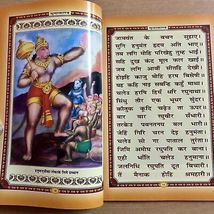 जामवंत के बचन सुहाए।
सुनि हनुमंत हृदय अति भाए॥
तब लगि मोहि परिखेहु तुम्ह भाई।
सहि दुख कंद मूल फल खाई॥
जब लगि आवौं सीतहि देखी।
होइहि काजु मोहि हरष बिसेषी॥
यह कहि नाइ सबन्हि कहुँ माथा।
चलेउ हरषि हियँ धरि रघुनाथा॥
सिंधु तीर एक भूधर सुंदर।
कौतुक कूदि चढ़ेउ ता ऊपर॥
बार बार रघुबीर सँभारी।
तरकेउ पवनतनय बल भारी॥
जेहिं गिरि चरन देइ हनुमंता।
चलेउ सो गा पाताल तुरंता॥
जिमि अमोघ रघुपति कर बाना।
एही भाँति चलेउ हनुमाना॥
जलनिधि रघुपति दूत बिचारी।
तैं मैनाक होहि श्रमहारी॥